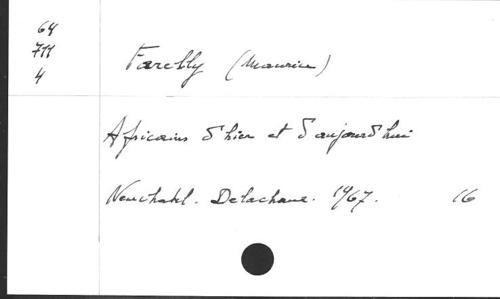 64
711
4
Farelly (Maurice)
Africains d'hier et d'aujourd'hui
Neuchatel. Delachaux. 1967. 16